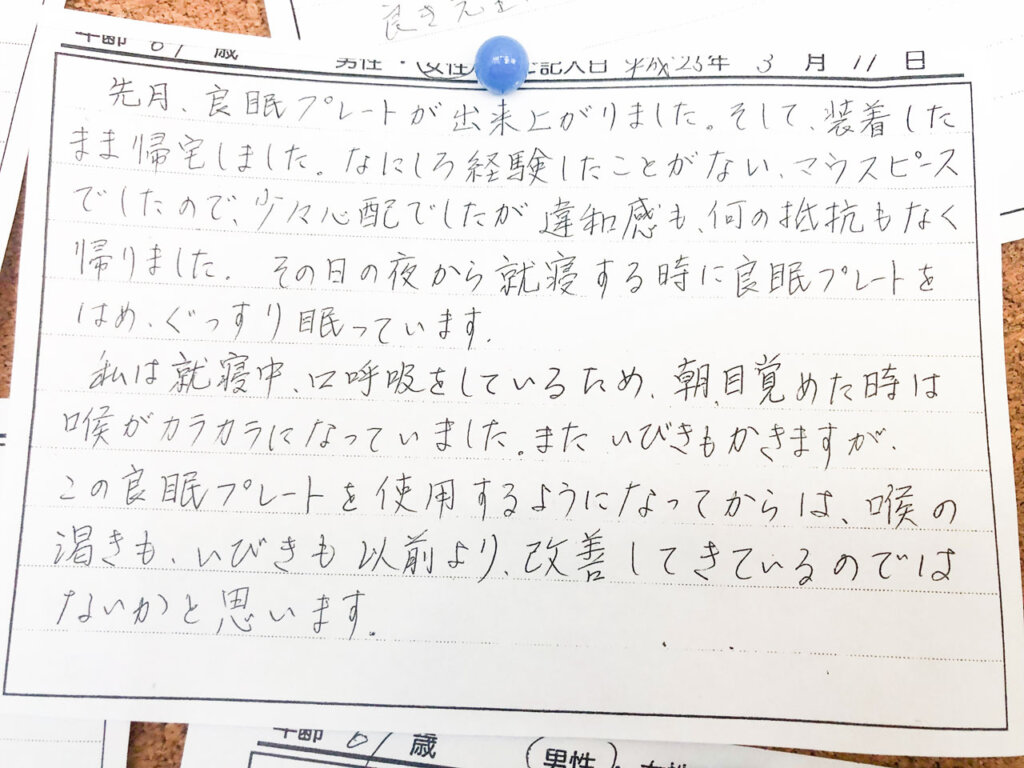 年齢 61 歳 男性・女性 記入日 平成25年 3月 11日
先月、良眠プレートが出来上がりました。そして、装着した
まま帰宅しました。なにしろ経験したことがない、マウスピース
でしたので、少々心配でしたが違和感も、何の抵抗もなく
帰りました。その日の夜から就寝する時に良眠プレートを
はめ、ぐっすり眠っています。
私は就寝中、口呼吸をしているため、朝、目覚めた時は
喉がカラカラになっていました。また いびきもかきますが、
この良眠プレートを使用するようになってからは、喉の
渇きも、いびきも以前より、改善してきているのでは
ないかと思います。
年齢 61 歳 男性・女性